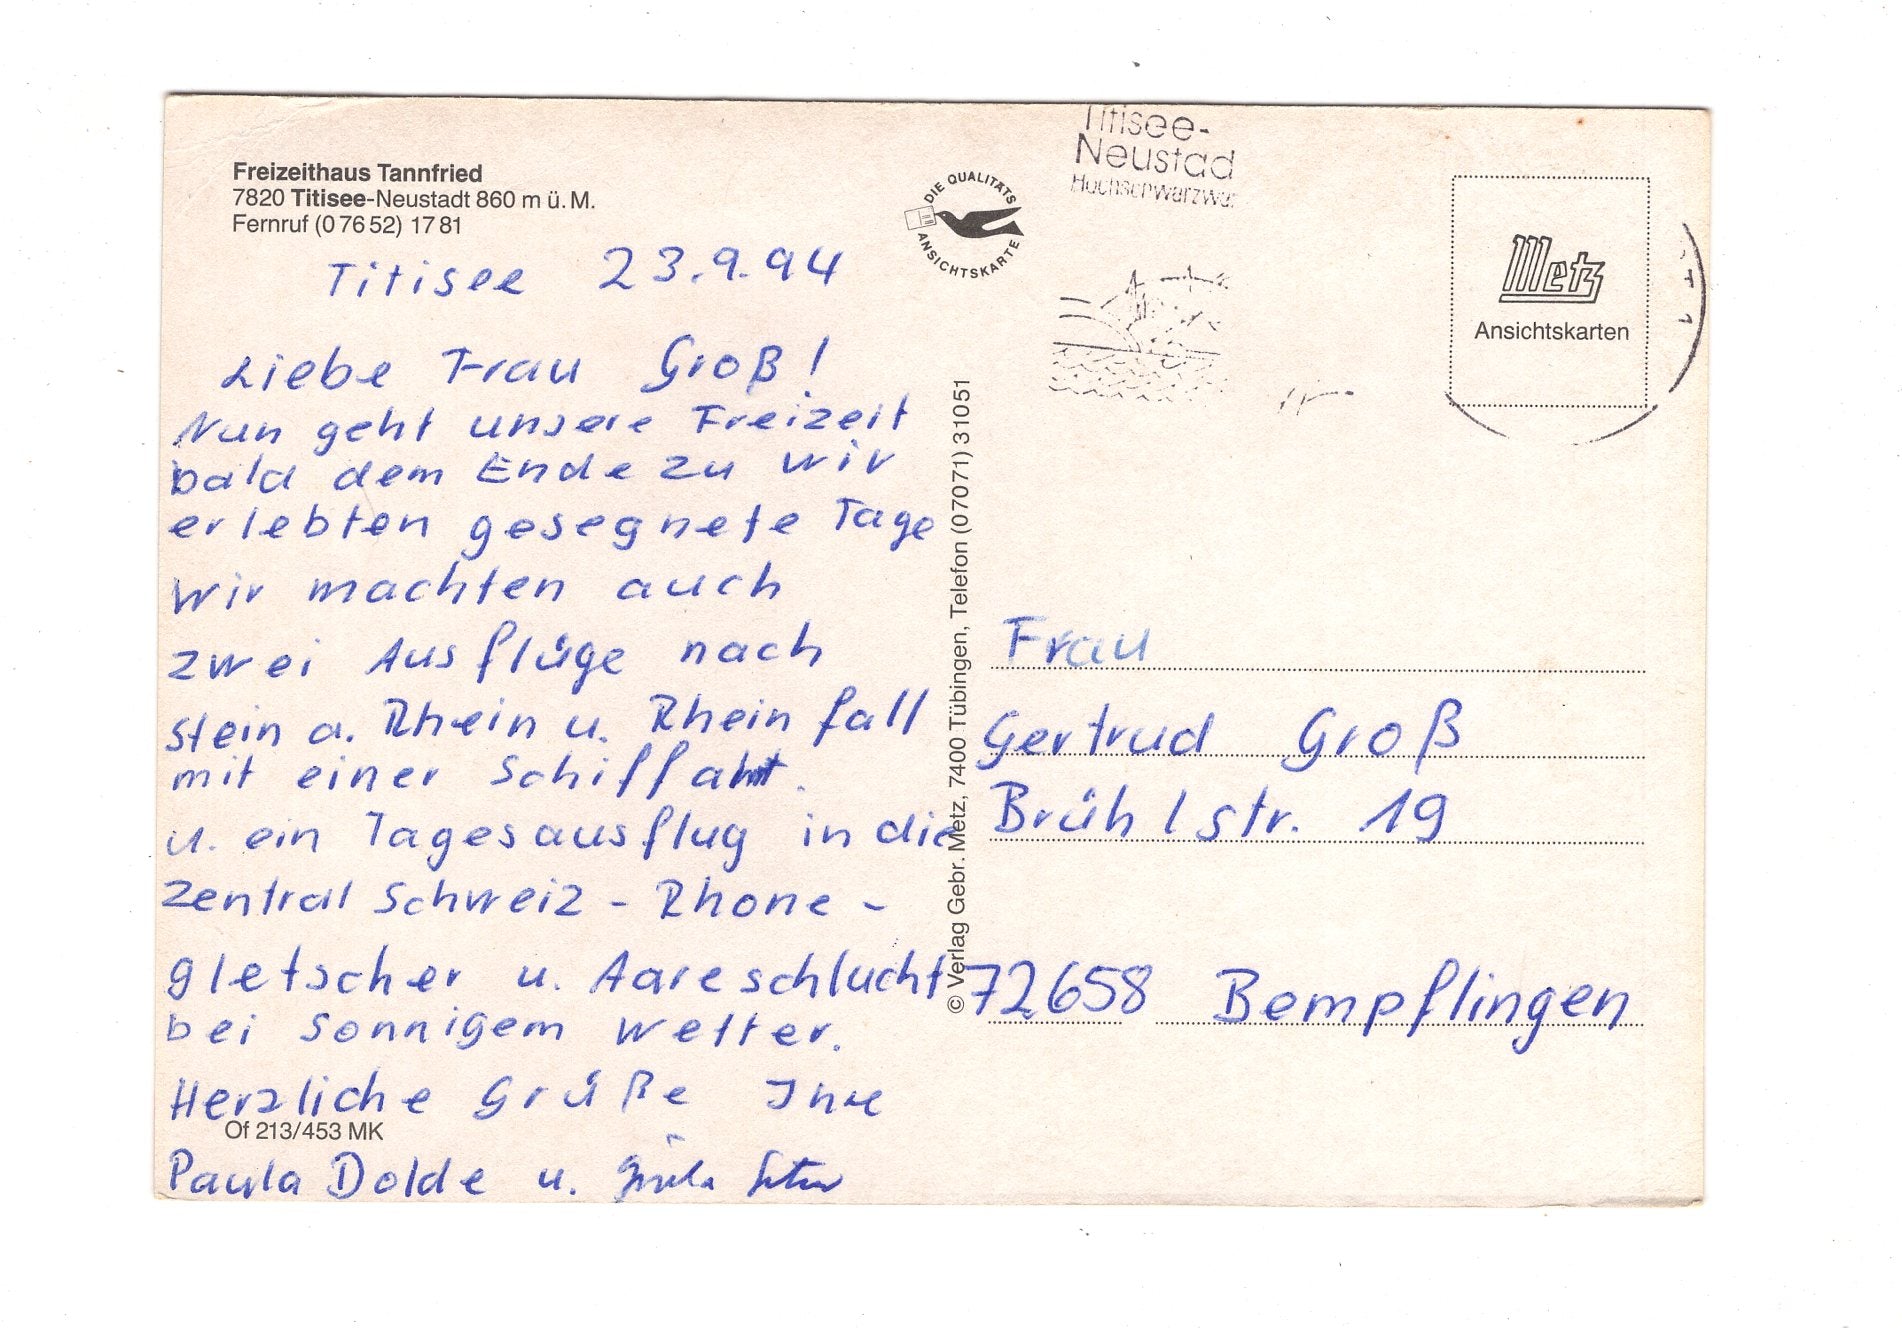 Freizeithaus Tannfried
7820 Titisee-Neustadt 860 m ü. M.
Fernruf (0 76 52) 17 81
Titisee 23.9.94
Liebe Frau Groß!
Nun geht unsere Freizeit
bald dem Ende zu wir
erlebten gesegnete Tage
wir machten auch
zwei Ausflüge nach
Stein a. Rhein u. Rheinfall
mit einer Schiffahrt.
u. ein Tagesausflug in die
Zentral Schweiz - Rhone-
gletscher u. Aareschlucht
bei sonnigem Wetter.
Herzliche Grüße Ihre
Of 213/453 MK
Paula Dolde u.
DIE QUALITÄTS
ANSICHTSKARTE
© Verlag Gebr. Metz, 7400 Tübingen, Telefon (07071) 31051
Titisee-
Neustad
Hochschwarzwa
Metz
Ansichtskarten
Frau
Gertrud Groß
Brühlstr. 19
72658 Bempflingen